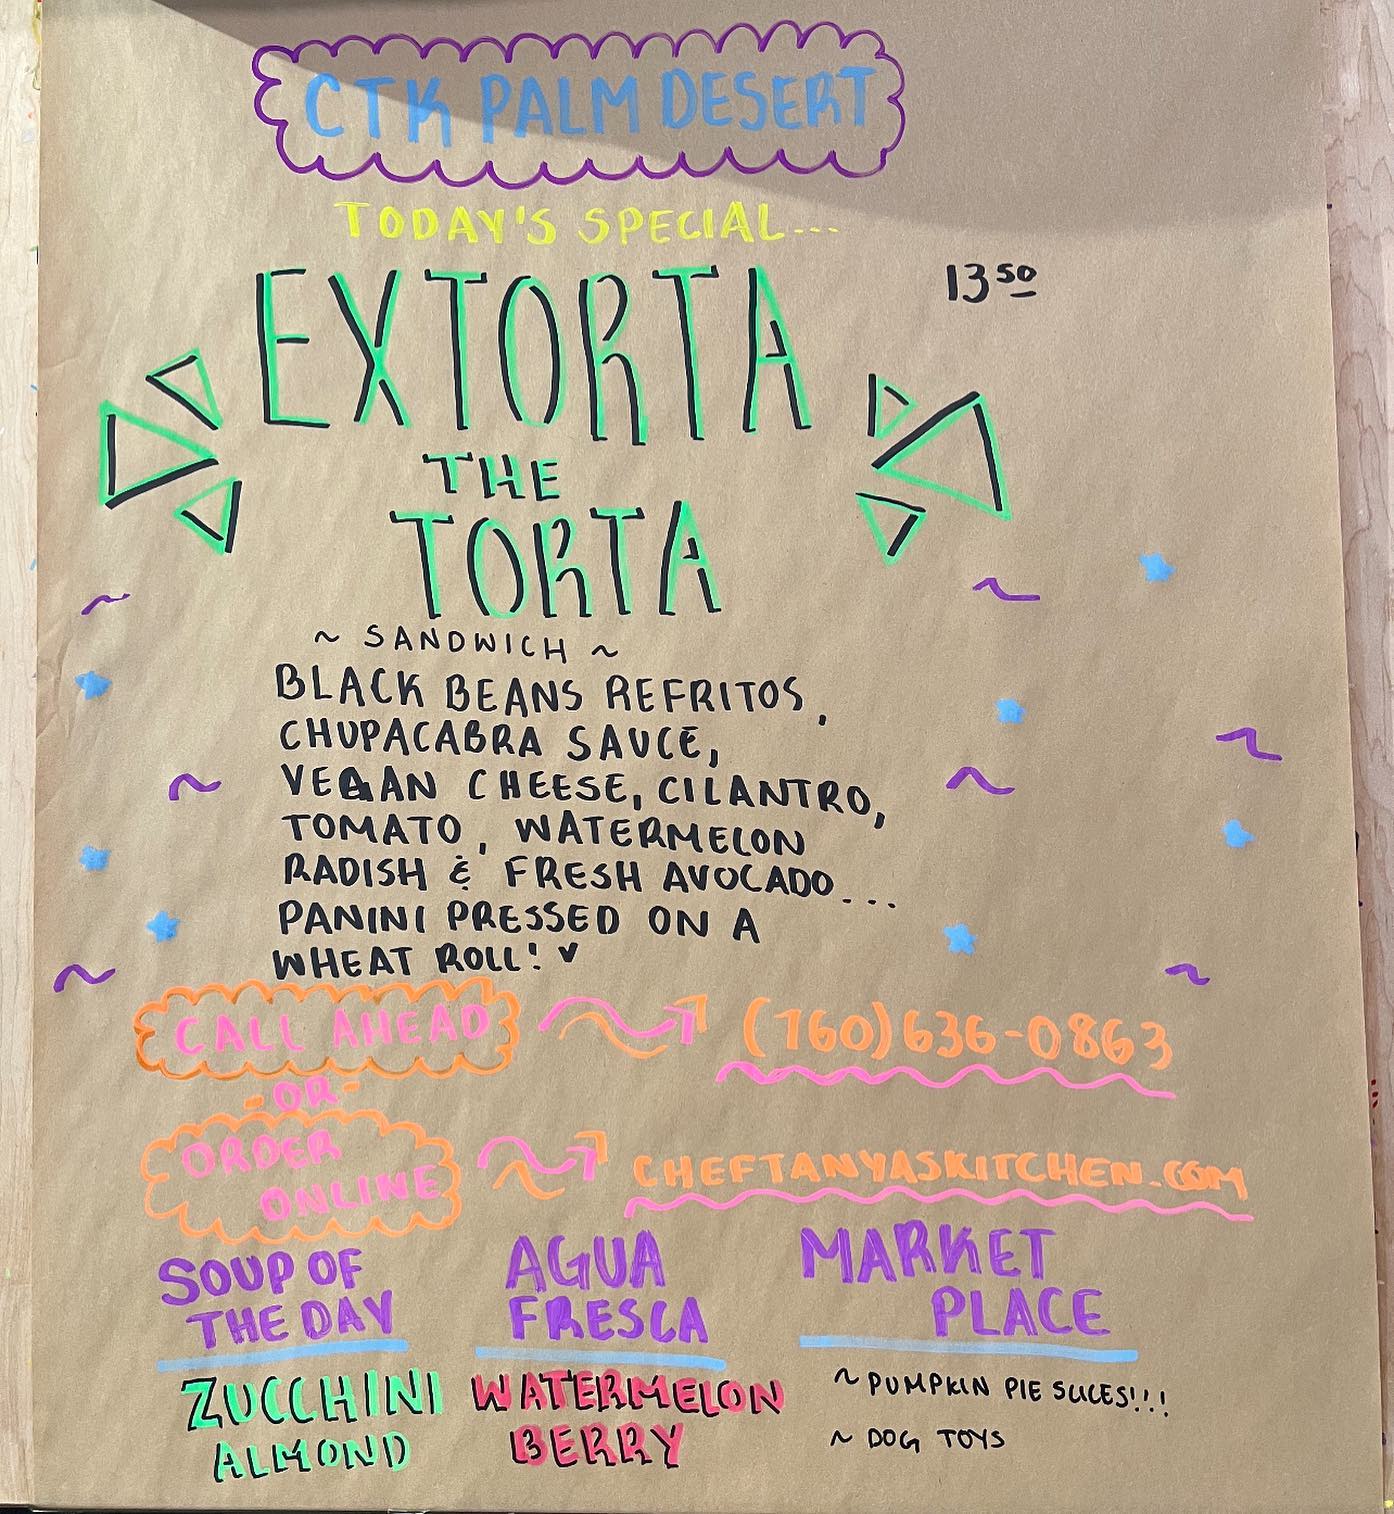 CTK PALM DESERT
TODAY'S SPECIAL...
EXTORTA
13 50
THE
TORTA
~ SANDWICH ~
BLACK BEANS REFRITOS,
CHUPACABRA SAUCE,
VEGAN CHEESE, CILANTRO,
TOMATO, WATERMELON
RADISH & FRESH AVOCADO...
PANINI PRESSED ON A
WHEAT ROLL! ♥
CALL AHEAD
(760)636-0863
-OR-
ORDER
ONLINE
CHEFTANYASKITCHEN.COM
SOUP OF
THE DAY
ZUCCHINI
ALMOND
AGUA
FRESCA
WATERMELON
BERRY
MARKET
PLACE
~ PUMPKIN PIE SLICES!!!
~ DOG TOYS